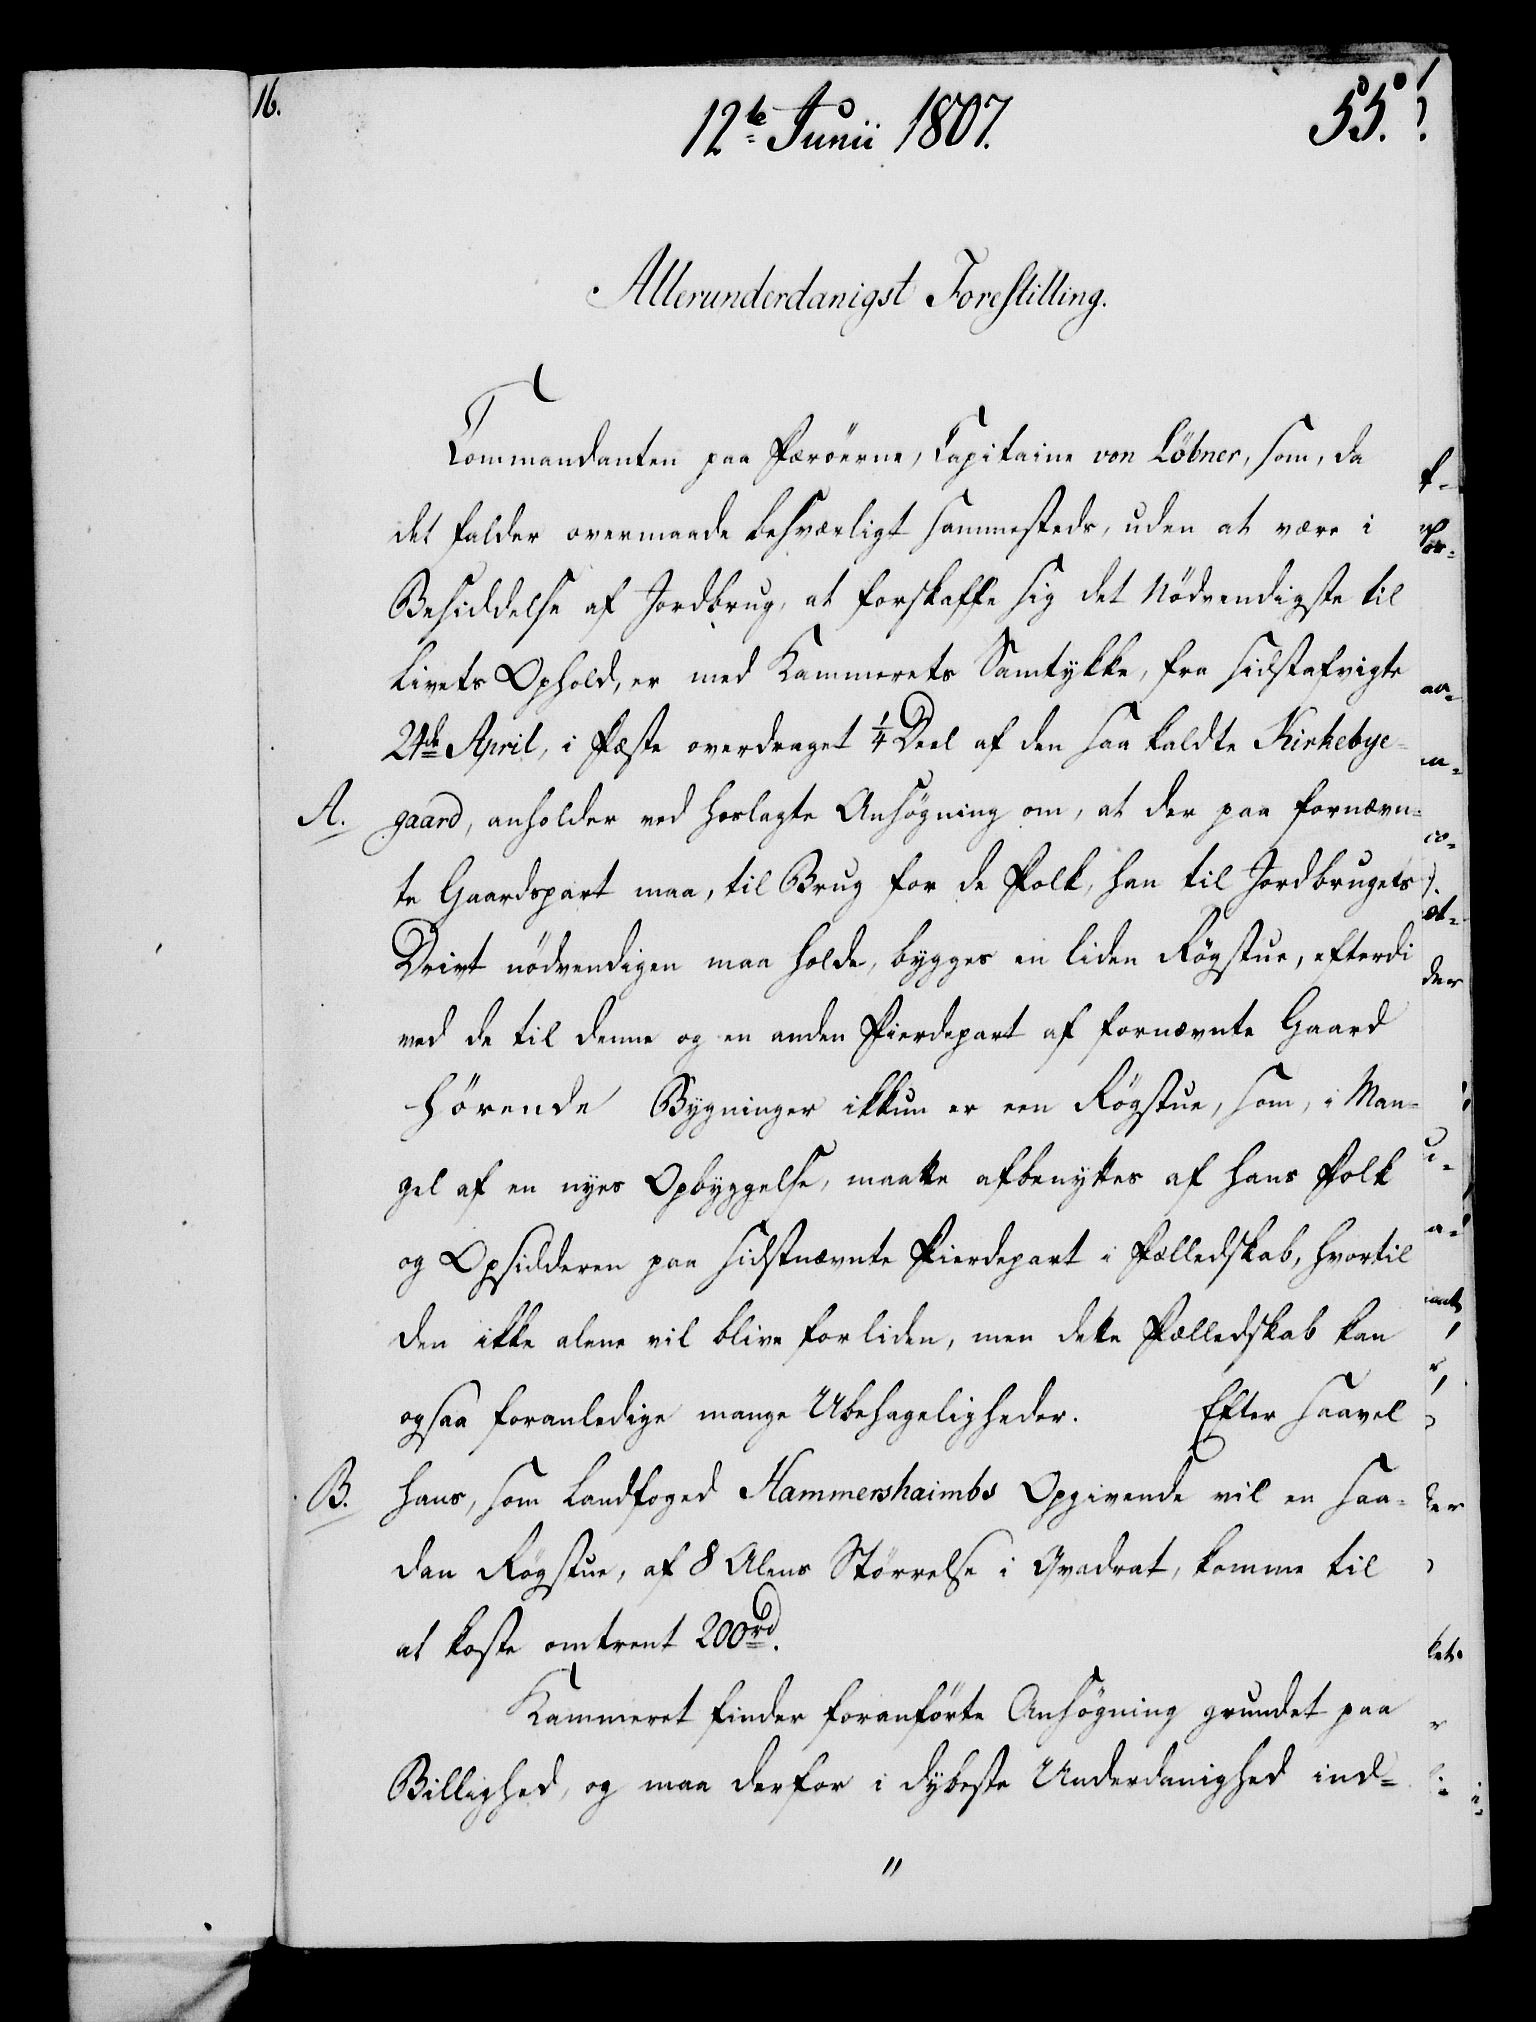 16.
12te Junii 1807.
55.
Allerunderdanigst Forestilling.
Commandanten paa Færöerne, Capitaine von Löbner, som, da
det falder overmaade besværligt sammesteds, uden at være i
Besiddelse af Jordbrug, at forskaffe sig det Nödvendigste til
Livets Ophold, er med Kammerets Samtykke, fra sidstafvigte
24de April, i Fæste overdraget 1/4 Deel af den saa kaldte Kirkebye-
A. gaard, anholder ved hoslagte Ansögning om, at der paa fornævn-
te Gaardspart maa, til Brug for de Folk, han til Jordbrugets
Drivt nödvendigen maa holde, bygges en liden Rögstue, efterdi
ved de til denne og en anden Fierdepart af fornævnte Gaard
hörende Bygninger ikkun er een Rögstue, som, i Man-
gel af en nyes Opbyggelse, maatte afbenyttes af hans Folk
og Opsidderen paa sidstnævnte Fierdepart i Fælledskab, hvortil
den ikke alene vil blive for liden, men dette Fælledskab kan
ogsaa foranledige mange Ubehageligheder. Efter saavel
B. hans, som Landfoged Hammershaimbs Opgivende vil en saa-
dan Rögstue, af 8 Alens Störrelse i Qvadrat, komme til
at koste omtrent 200rd.
Kammeret finder foranförte Ansögning grundet paa
Billighed, og maa derfor i dybeste Underdanighed ind-
"